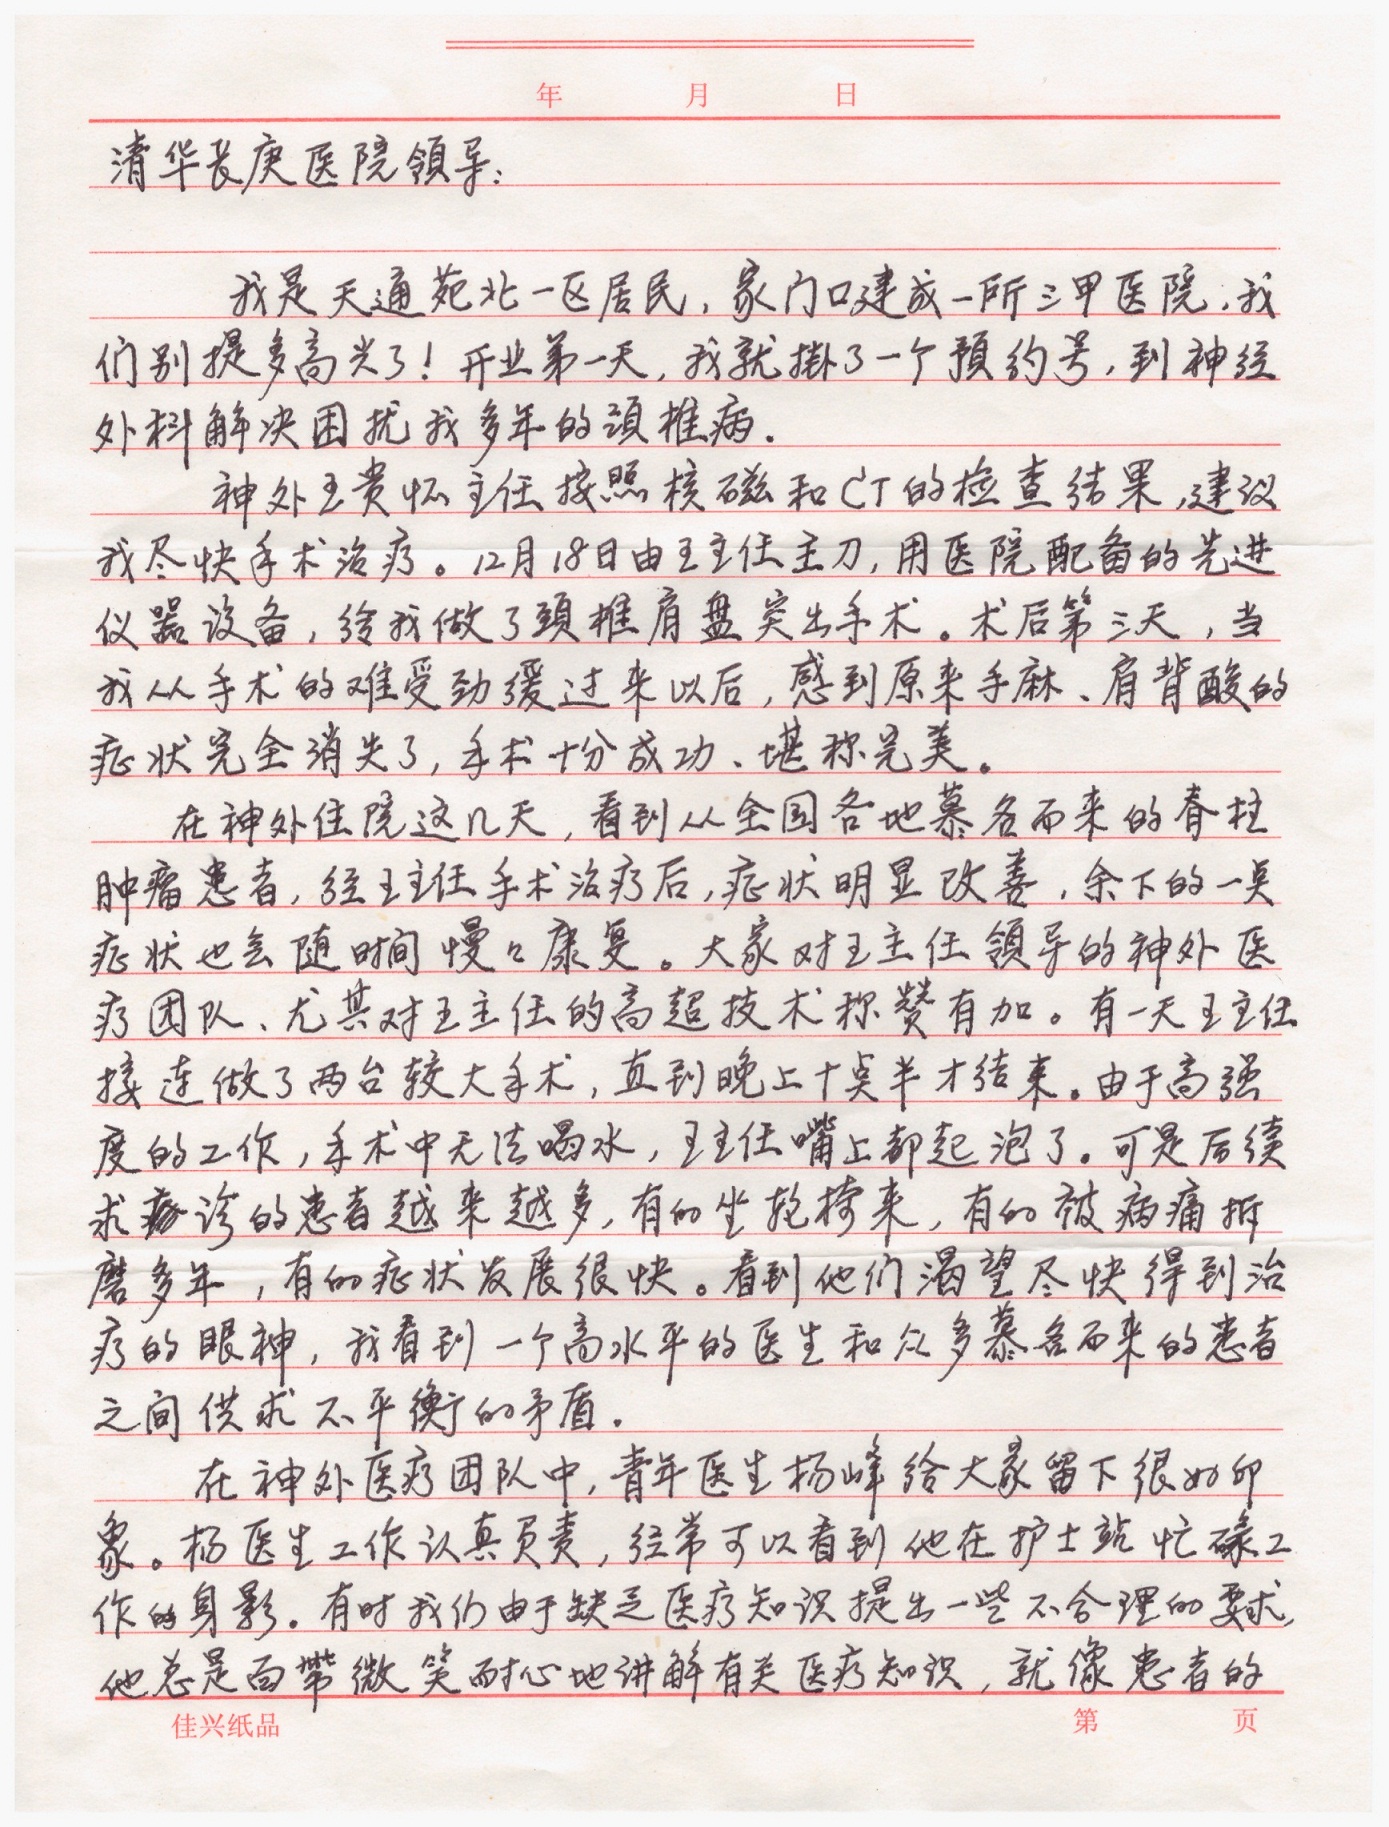 年 月 日
清华长庚医院领导：
我是天通苑北一区居民，家门口建成一所三甲医院，我
们别提多高兴了！开业第一天，我就掛了一个預约号，到神经
外科解决困扰我多年的頚椎病。
神外王贵怀主任按照核磁和CT的检查结果，建议
我尽快手术治疗。12月18日由王主任主刀，用医院配备的先进
仪器设备，给我做了頚椎肩盘突出手术。术后第三天，当
我从手术的难受劲缓过来以后，感到原来手麻、肩背酸的
症状完全消失了，手术十分成功、堪称完美。
在神外住院这几天，看到从全国各地慕名而来的脊柱
肿瘤患者，经王主任手术治疗后，症状明显改善，余下的一点
症状也会随时间慢々康复。大家对王主任領导的神外医
疗团队、尤其对王主任的高超技术称赞有加。有一天王主任
接连做了两台较大手术，直到晚上十点半才结束。由于高强
度的工作，手术中无法喝水，王主任嘴上都起泡了。可是后续
求诊的患者越来越多，有的坐轮椅来，有的被病痛折
磨多年，有的症状发展很快。看到他们渴望尽快得到治
疗的眼神，我看到一个高水平的医生和众多慕名而来的患者
之间供求不平衡的矛盾。
在神外医疗团队中，青年医生杨峰给大家留下很好印
象。杨医生工作认真负责，经常可以看到他在护士站忙碌工
作的身影。有时我们由于缺乏医疗知识提出一些不合理的要求，
他总是面带微笑耐心地讲解有关医疗知识，就像患者的
佳兴纸品 第 页